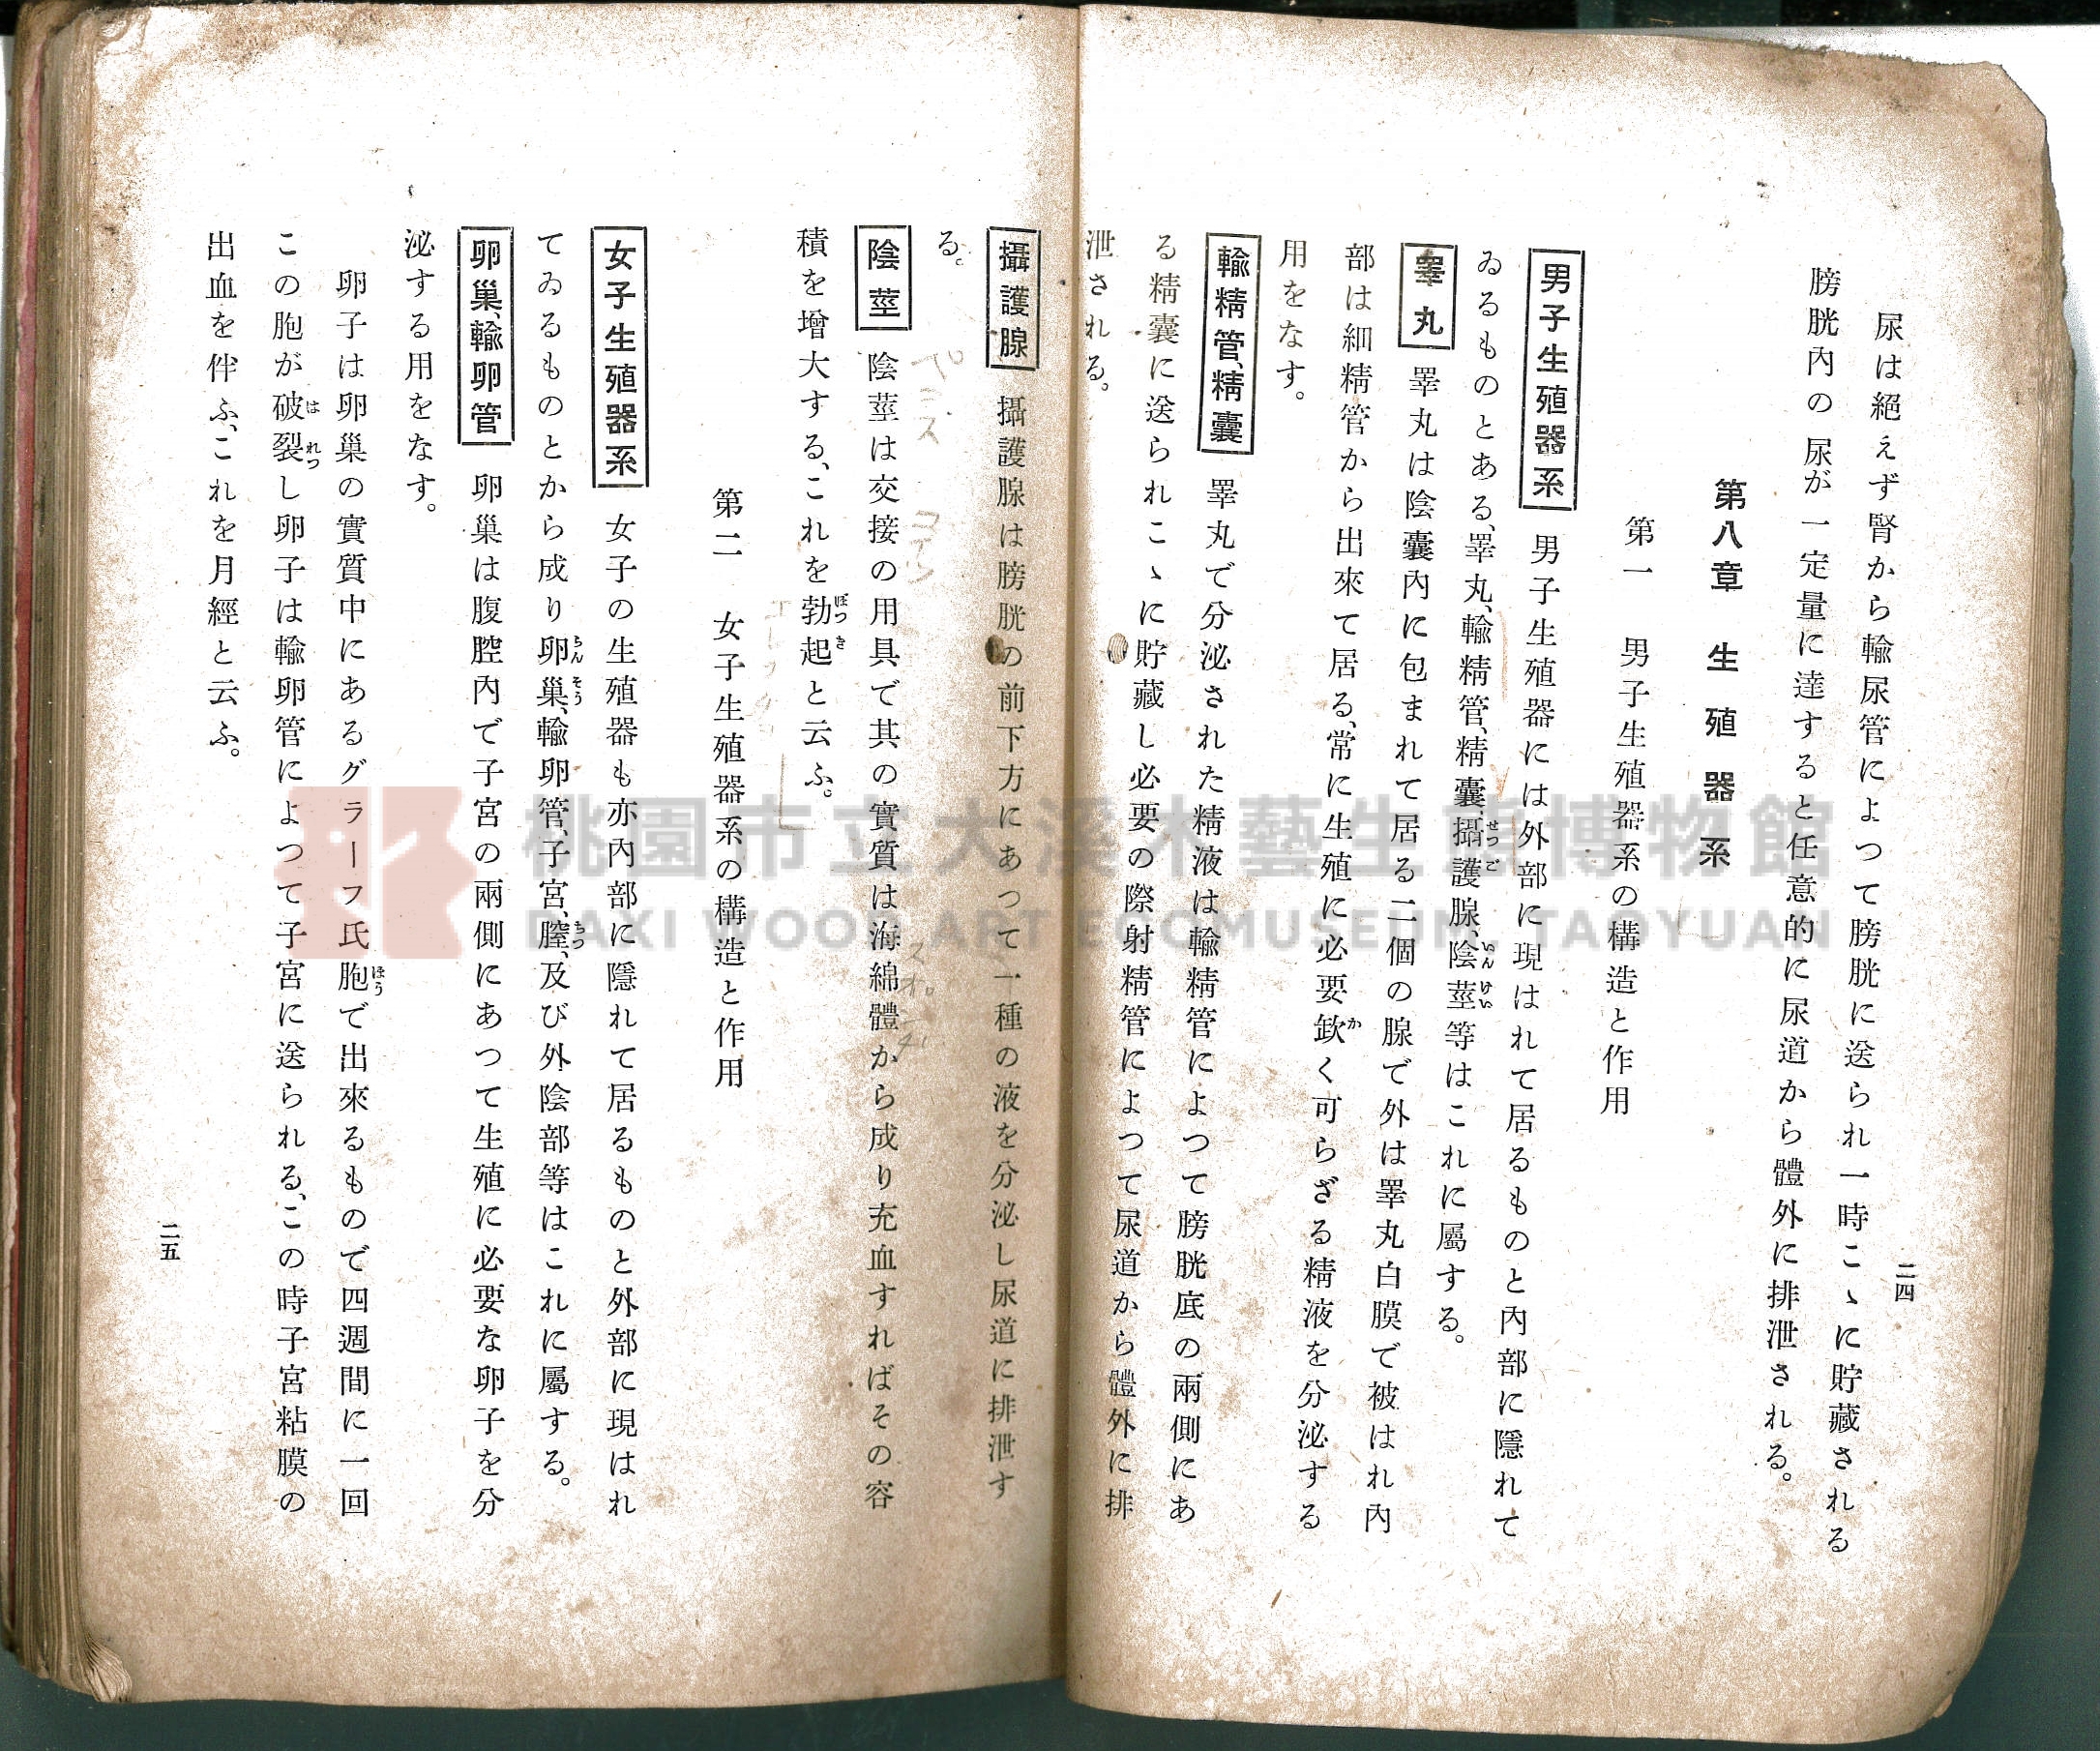 二四
尿は絕えず腎から輸尿管によつて膀胱に送られ一時こゝに貯藏される
膀胱內の尿が一定量に達すると任意的に尿道から體外に排泄される。
第八章 生殖器系
第一 男子生殖器系の構造と作用
男子生殖器系 男子生殖器には外部に現はれて居るものと內部に隱れて
ゐるものとある、睾丸、輸精管、精囊、攝護腺、陰莖等はこれに屬する。
睾丸 睾丸は陰囊內に包まれて居る二個の腺で外は睾丸白膜で被はれ內
部は細精管から出來て居る、常に生殖に必要欽く可らざる精液を分泌する
用をなす。
輸精管、精囊 睾丸で分泌された精液は輸精管によつて膀胱底の兩側にあ
る精囊に送られこゝに貯藏し必要の際射精管によつて尿道から體外に排
泄される。
攝護腺 攝護腺は膀胱の前下方にあつて一種の液を分泌し尿道に排泄す
る。
陰莖 陰莖は交接の用具で其の實質は海綿體から成り充血すればその容
積を增大する、これを勃起と云ふ。
第二 女子生殖器系の構造と作用
女子生殖器系 女子の生殖器も亦內部に隱れて居るものと外部に現はれ
てゐるものとから成り卵巢、輸卵管、子宮、膣、及び外陰部等はこれに屬する。
卵巢、輸卵管 卵巢は腹腔內で子宮の兩側にあつて生殖に必要な卵子を分
泌する用をなす。
卵子は卵巢の實質中にあるグラーフ氏胞で出來るもので四週間に一回
この胞が破裂し卵子は輸卵管によつて子宮に送られる、この時子宮粘膜の
出血を伴ふ、これを月經と云ふ。
二五
桃園市立大溪木藝生態博物館
DAXI WOOD ART ECOMUSEUM, TAOYUAN